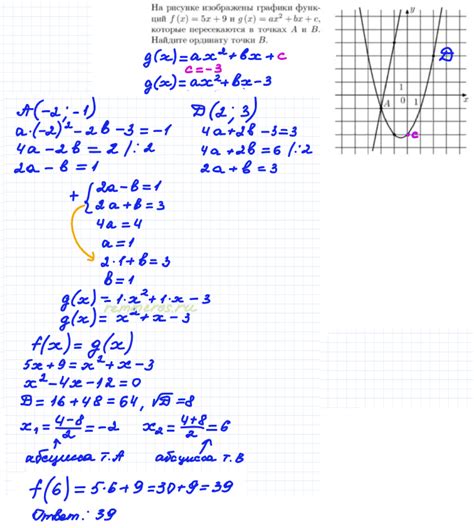 На рисунке изображены графики функ-
ций f(x) = 5x + 9 и g(x) = ax² + bx + c,
которые пересекаются в точках A и B.
Найдите ординату точки B.
g(x)=ax²+bx+c
c=-3
g(x)=ax²+bx-3
A(-2;-1)
a·(-2)²-2b-3=-1
4a-2b=2 /:2
2a-b=1
D(2;3)
4a+2b-3=3
4a+2b=6 /:2
2a+b=3
+ { 2a-b=1
2a+b=3
4a=4
a=1
2·1+b=3
b=1
g(x)=1·x²+1·x-3
g(x)=x²+x-3
f(x)=g(x)
5x+9=x²+x-3
x²-4x-12=0
D=16+48=64, √D=8
x₁=(4-8)/2=-2 x₂=(4+8)/2=6
абсцисса т.A абсцисса т.B
f(6)=5·6+9=30+9=39
Ответ: 39
y
D
1
A
0 1
x
c